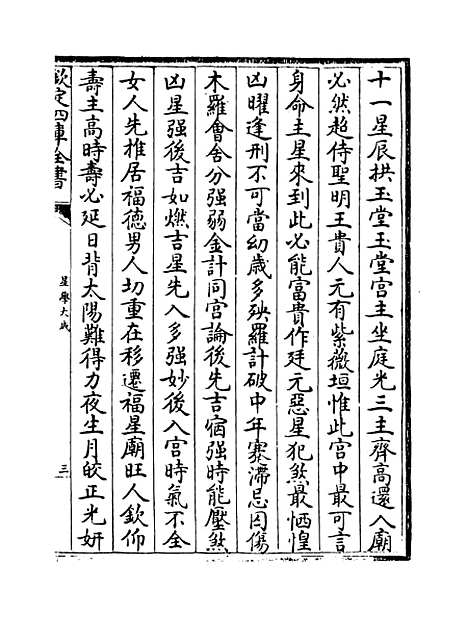 十一星辰拱玉堂玉堂宫主坐庭光三主齊高還入廟
必然超侍聖明王貴人元有紫微垣惟此宫中最可言
身命主星來到此必能富貴作廷元惡星犯煞最恓惶
凶曜逢刑不可當幼歲多殃羅計破中年蹇滯忌囚傷
木羅會舍分强弱金計同宫論後先吉宿强時能壓煞
凶星强後吉如燃吉星先入多强妙後入宫時氣不全
女人先推居福德男人切重在移遷福星廟旺人欽仰
壽主高時壽必延日背太陽難得力夜生月皎正光妍
欽定四庫全書
星學大成
三